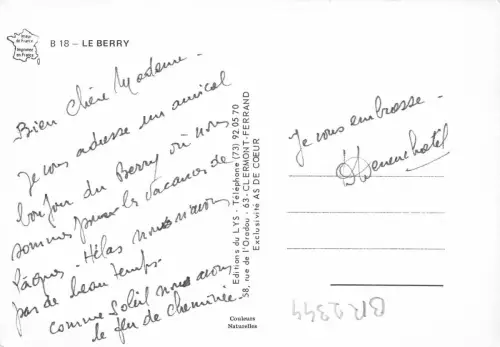 B 18 – LE BERRY
Imagé
de France
Imprimée
en France
Bien Chère Madame -
Je vous adresse un amical
bonjour du Berry où nous
sommes pour les vacances de
Pâques. Hélas nous n'avons
pas de beau temps.
comme Soleil nous avons
le feu de cheminée.
Editions du LYS - Téléphone (73) 92 05 70
58, rue de l'Oradou - 63 - CLERMONT-FERRAND
Exclusivité AS DE COEUR
Couleurs
Naturelles
Je vous embrasse -
BR2344